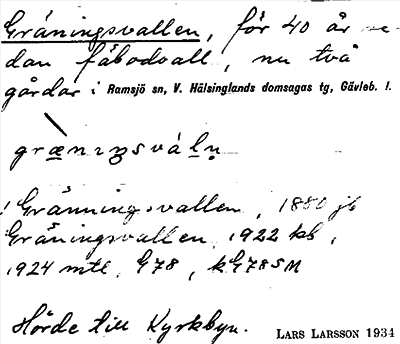 Gräningsvallen, för 40 år se-
dan fäbodvall, nu två
gårdar i Ramsjö sn, V. Hälsinglands domsagas tg, Gävleb. l.
græniŋsválṇ
Gränningsvallen, 1880 jb
Gräningsvallen, 1922 kb,
1924 mtl, G78, kG78SM
Hörde till Kyrkbyn.
LARS LARSSON 1934